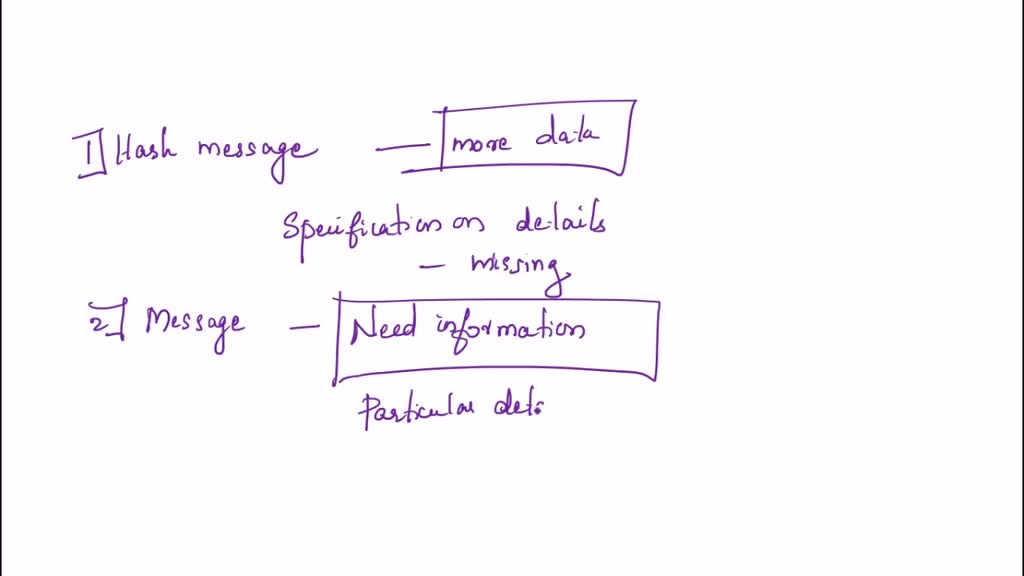 1] Hash message — more data
Specification on details
— missing
2] Message — Need information
Particular deta